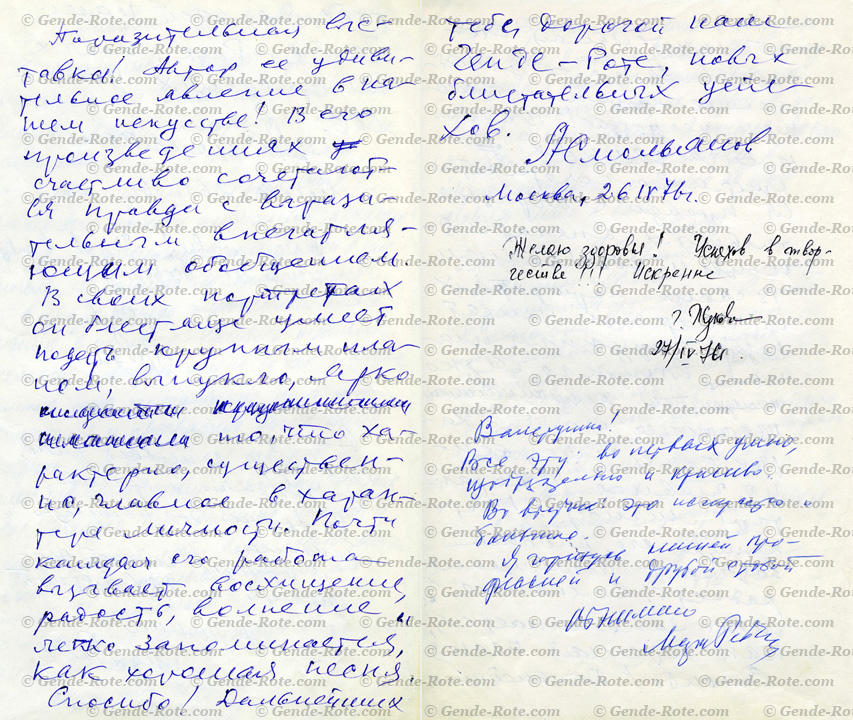 Поразительная выс-
тавка! Автор ее удиви-
тельное явление в на-
шем искусстве! В его
произведениях
счастливо сочетают-
ся правда с вырази-
тельным впечатля-
ющим обобщением.
В своих портретах
он блестяще умеет
подать крупным пла-
ном, выпукло, ярко
то, что ха-
рактерно, существен-
но, главное в харак-
тере личности. Почти
каждая его работа
вызывает восхищение,
радость, волнение,
легко запоминается,
как хорошая песня.
Спасибо! Дальнейших
тебе, дорогой наш
Генде-Роте, новых
блистательных успе-
хов.
А Смольянов
Москва, 26 IV 76г.
Желаю здоровья! Успехов в твор-
честве!!! Искренне
27/IV 76г.
Валерушка!
Все эту во первых умно,
и красиво.
Во вторых это
Я горжусь нашей про-
фессией и дружбой с тобой
© Gende-Rote.com